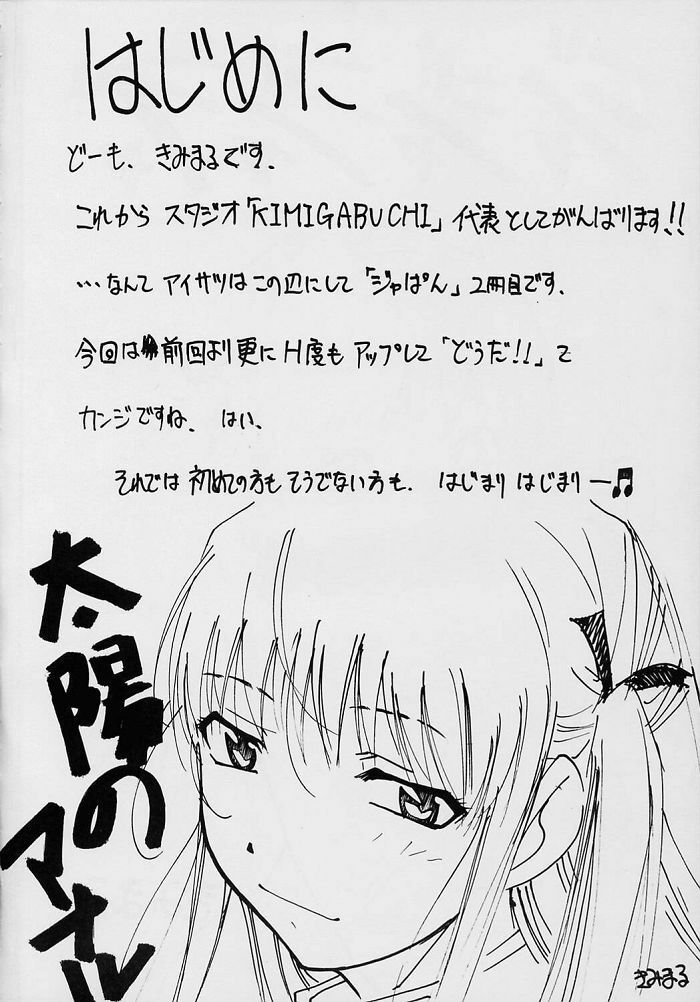 はじめに
どーも、きみまるです、
これから スタジオ「KIMIGABUCHI」代表としてがんばります!!
…なんて アイサツは この辺にして「ジャぱん」2冊目です、
今回は前回より更に H度も アップして「どうだ!!」て
カンジですね、 はい、
それでは 初めての方も そうでない方も、 はじまり はじまりー♫
太陽の
マナル
きみまる